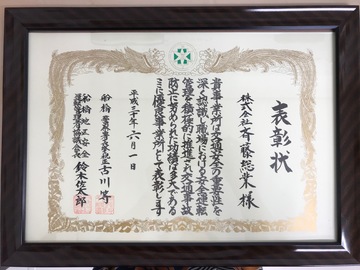 表彰状
株式会社斉藤総業様
貴事業所は交通安全の重要性を
深く認識し職場における安全運転
管理を積極的に推進され交通事故
防止に努められた功績は多大である
ここに優良事業所として表彰します
平成三十年六月一日
船橋警察署長
古川等
船橋地区安全
運転管理者協議会会長
鈴木佐太郎